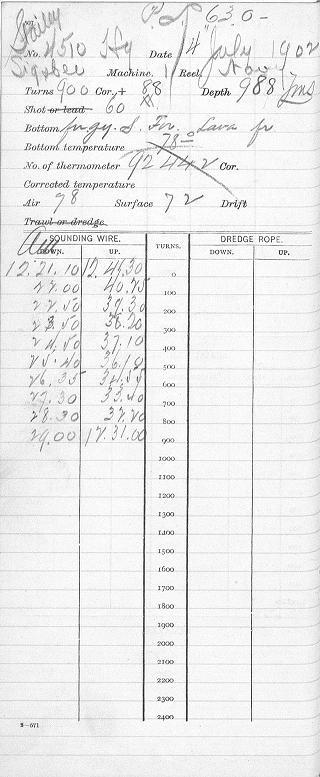 630-
No. 4510 Hy Date 14 July 1902
Machine. 1 Reel,
Turns 900 Cor. + 88 Depth 988 fms
Shot or lead 60
Bottom fn. gy. S. For. Lava
Bottom temperature 78-0
No. of thermometer 92442 Cor.
Corrected temperature
Air 78 Surface 72 Drift
Trawl or dredge
SOUNDING WIRE. TURNS. DREDGE ROPE.
DOWN. UP. DOWN. UP.
12.21.10 12.49.30 0
22.00 40.75 100
22.50 39.30 200
23.50 38.20 300
24.50 37.10 400
25.40 36.10 500
26.35 34.55 600
27.30 33.40 700
28.30 32.20 800
29.00 12.31.00 900
1000
1100
1200
1300
1400
1500
1600
1700
1800
1900
2000
2100
2200
2300
2400